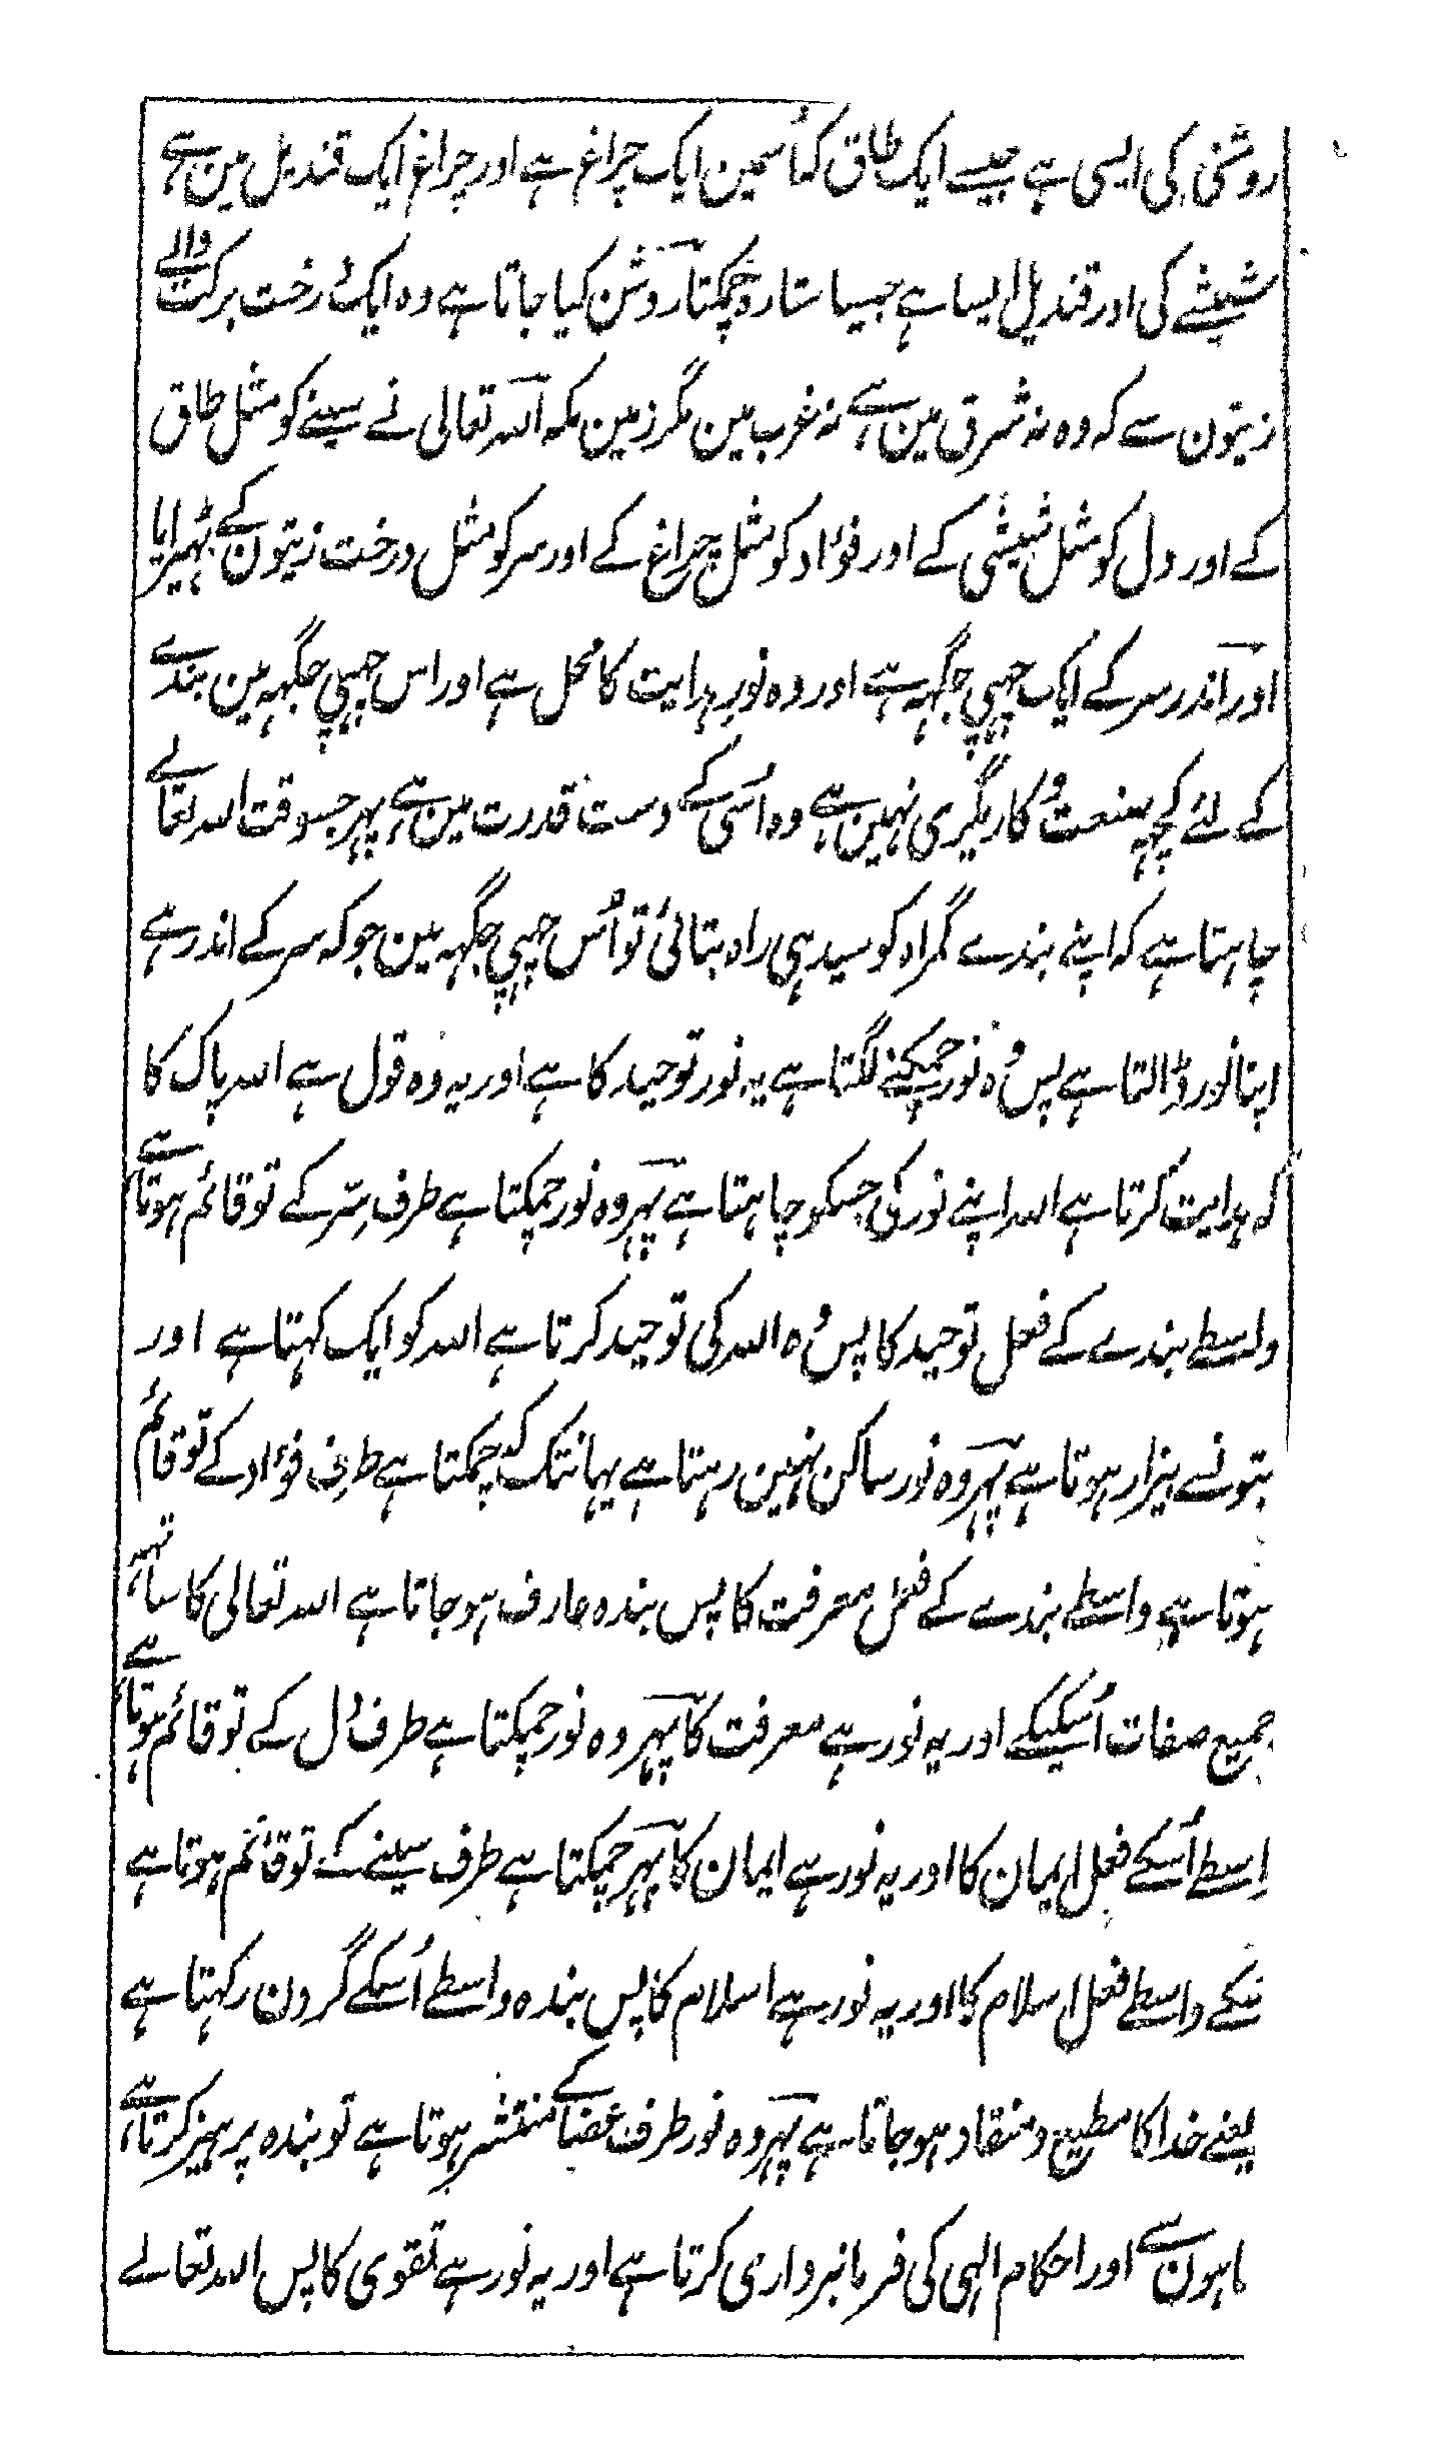 روشنی کی ایسی ہے جیسے ایک طاق کہ اُسمین ایک چراغ ہے اور چراغ ایک قندیل مین ہے
شیشے کی اور قندیل ایسا ہے جیسا ستارہ چمکتا روشن کیا جاتا ہے وہ ایک درخت برکت والے
زیتون سے کہ وہ نہ شرق مین ہے نہ غرب مین مگر زمین مکہ اللہ تعالی نے سینے کو مثل طاق
کے اور دل کو مثل شیشی کے اور فؤاد کو مثل چراغ کے اور سر کو مثل درخت زیتون کے ٹھیرایا
اور اندر سر کے ایک چھپی جگہہ ہے اور وہ نور ہدایت کا محل ہے اور اس چھپی جگہہ مین بندے
کے لئے کچھ صنعت و کاریگری نہین ہے وہ اُسی کے دست قدرت مین ہے پہر جسوقت اللہ تعالے
چاہتا ہے کہ اپنے بندے گمراہ کو سیدہی راہ بتائی تو اُس چھپی جگہہ مین جو کہ سر کے اندر ہے
اپنا نور ڈالتا ہے پس وہ نور چمکنے لگتا ہے یہ نور توحید کا ہے اور یہ وہ قول ہے اللہ پاک کا
کہ ہدایت کرتا ہے اللہ اپنے نور کی جسکو چاہتا ہے پہر وہ نور چمکتا ہے طرف سِرّ کے تو قائم ہوتا ہے
واسطے بندے کے فعل توحید کا پس وہ اللہ کی توحید کرتا ہے اللہ کو ایک کہتا ہے اور
بتونسے بیزار ہوتا ہے پہر وہ نور ساکن نہین رہتا ہے یہانتک کہ چمکتا ہے طرف فؤاد کے تو قائم
ہوتا ہے واسطے بندے کے فعل معرفت کا پس بندہ عارف ہو جاتا ہے اللہ تعالی کا ساتھہ
جمیع صفات اُسیکے اور یہ نور ہے معرفت کا پہر وہ نور چمکتا ہے طرف دل کے تو قائم ہوتا ہے
اسطے اُسکے فعل ایمان کا اور یہ نور ہے ایمان کا پہر چمکتا ہے طرف سینے کے تو قائم ہوتا ہے
واسطے فعل اسلام کا اور یہ نور ہے اسلام کا پس بندہ واسطے اُسکے گردن رکہتا ہے
یعنے خدا کا مطیع و منقاد ہو جاتا ہے پہر وہ نور طرف اعضا کے منتشر ہوتا ہے تو بندہ پرہیز کرتا ہے
اور احکام الہی کی فرمانبرداری کرتا ہے اور یہ نور ہے تقوی کا پس اللہ تعالے